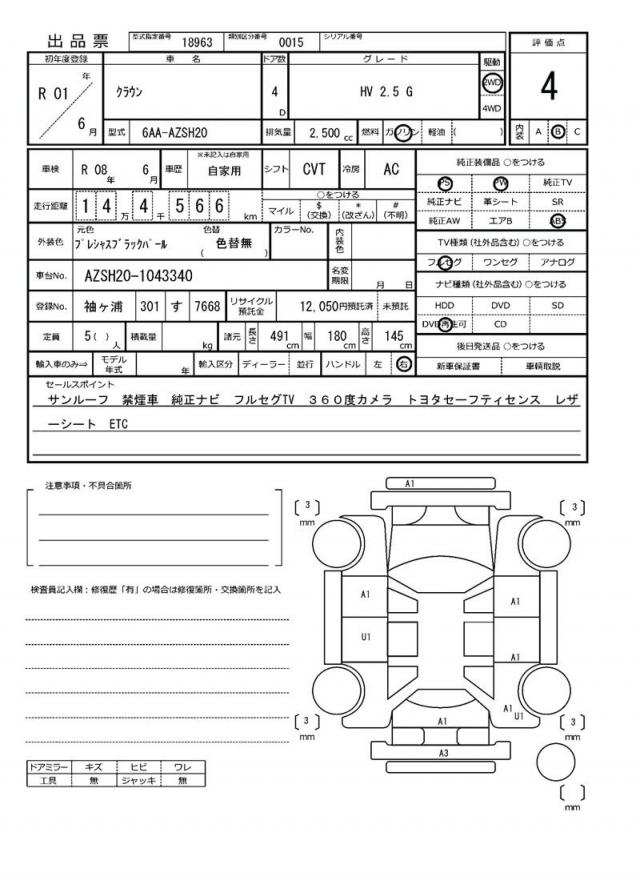 出品票 型式指定番号 18963 類別区分番号 0015 シリアル番号
評価点
4
内装 A B C
初年度登録 車名 ドア数 グレード 駆動
R 01 年 6 月 クラウン 4 D HV 2.5 G 2WD 4WD
型式 6AA-AZSH20 排気量 2,500 cc 燃料 ガソリン 軽油 ( )
車検 R 08 年 6 月 車歴 ※未記入は自家用 自家用 シフト CVT 冷房 AC
走行距離 1 4 万 4 千 5 6 6 km
○をつける
マイル $ (交換) * (改ざん) # (不明)
外装色 元色 プレシャスブラックパール 色替 ( 色替無 ) カラーNo. 内装色
車台No. AZSH20-1043340 名変期限 月 日
登録No. 袖ヶ浦 301 す 7668 リサイクル預託金 12,050円預託済 未預託
定員 5( ) 人 積載量 kg 諸元 長さ 491 cm 幅 180 cm 高さ 145 cm
輸入車のみ⇒ モデル年式 年 輸入区分 ディーラー 並行 ハンドル 左 右
純正装備品 ○をつける
PS PW 純正TV
純正ナビ 革シート SR
純正AW エアB ABS
TV種類(社外品含む)○をつける
フルセグ ワンセグ アナログ
ナビ種類(社外品含む)○をつける
HDD DVD SD
DVD再生可 CD
後日発送品 ○をつける
新車保証書 車輌取説
セールスポイント
サンルーフ 禁煙車 純正ナビ フルセグTV 360度カメラ トヨタセーフティセンス レザ
ーシート ETC
注意事項・不具合箇所
検査員記入欄:修復歴「有」の場合は修復箇所・交換箇所を記入
ドアミラー キズ ヒビ ワレ
工具 無 ジャッキ 無
A1
3 mm
3 mm
A1
A1
U1
A1
A1
U1
A1
A3
3 mm
3 mm
mm